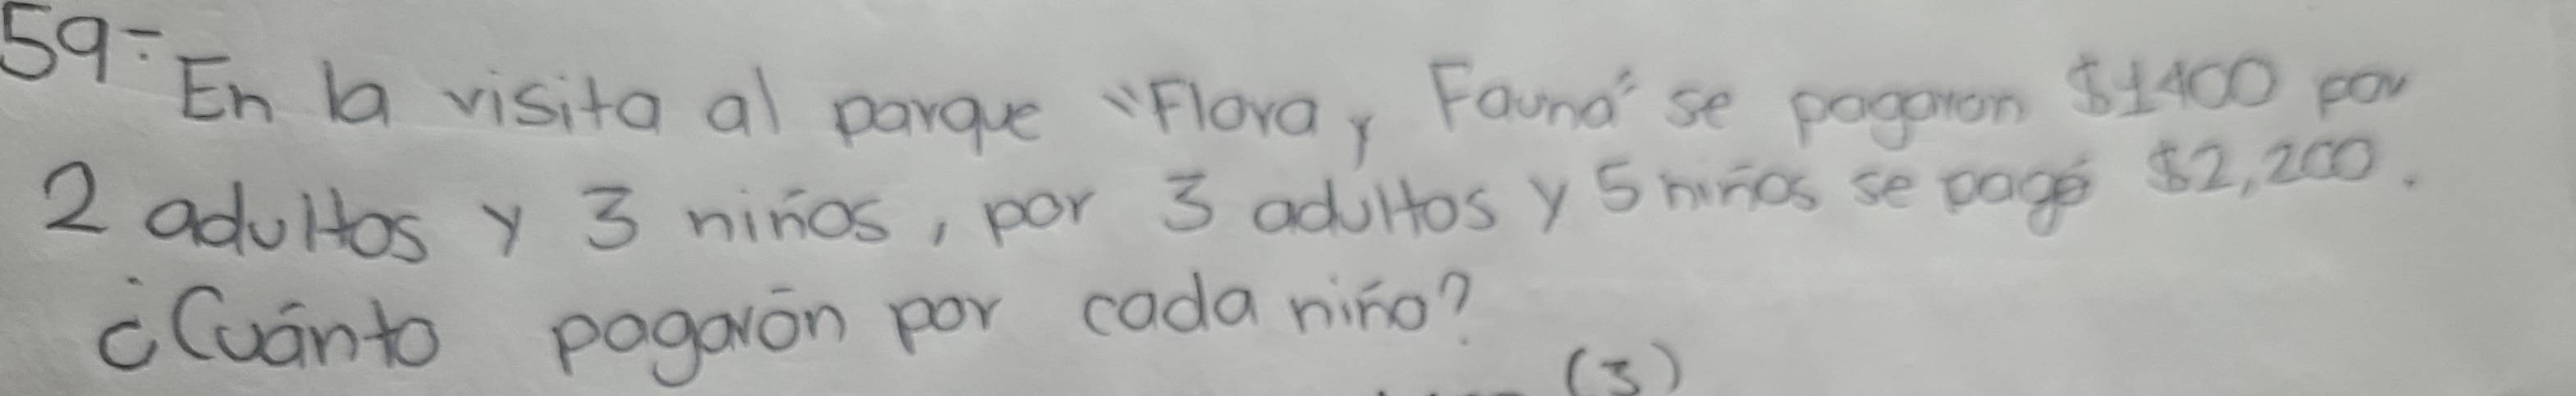 59-
En la visita al parque "Flora y Fauna" se pagaron $1400 por
2 adultos y 3 niños, por 3 adultos y 5 niños se pagó $2,200.
¿Cuánto pagarón por cada niño?
(3)